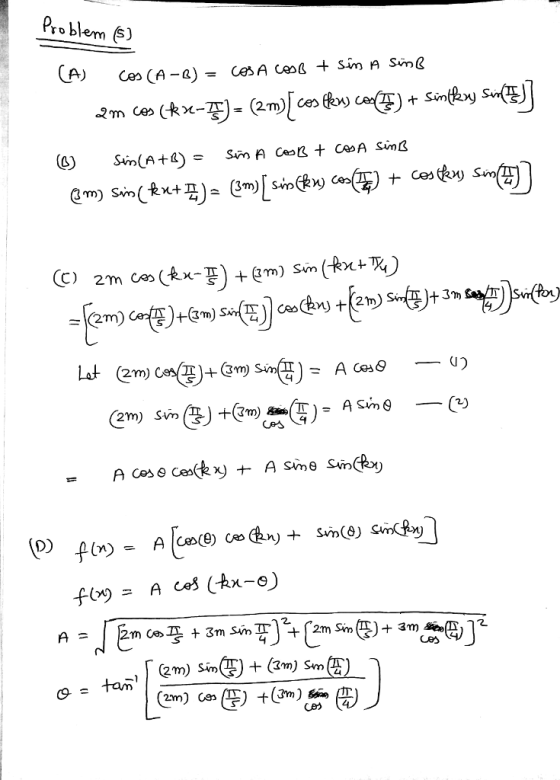 Problem (5)
(A) cos(A-B) = cosA cosB + sin A sinB
2m cos(kx-π/5) = (2m)[cos(kx) cos(π/5) + sin(kx) sin(π/5)]
(B) sin(A+B) = sin A cosB + cosA sinB
(3m) sin(kx+π/4) = (3m)[sin(kx) cos(π/4) + cos(kx) sin(π/4)]
(C) 2m cos(kx-π/5) + (3m) sin(kx+π/4)
=[(2m) cos(π/5)+(3m) sin(π/4)] cos(kx) +[(2m) sin(π/5)+3m cos(π/4)] sin(kx)
Let (2m) cos(π/5)+(3m) sin(π/4) = A cosθ — (1)
(2m) sin(π/5)+(3m) cos(π/4) = A sinθ — (2)
= A cosθ cos(kx) + A sinθ sin(kx)
(D) f(x) = A[cos(θ) cos(kx) + sin(θ) sin(kx)]
f(x) = A cos(kx-θ)
A = √[2m cos π/5 + 3m sin π/4]²+[2m sin(π/5)+3m cos(π/4)]²
θ = tan⁻¹[(2m) sin(π/5)+(3m) sin(π/4) / (2m) cos(π/5)+(3m) cos(π/4)]